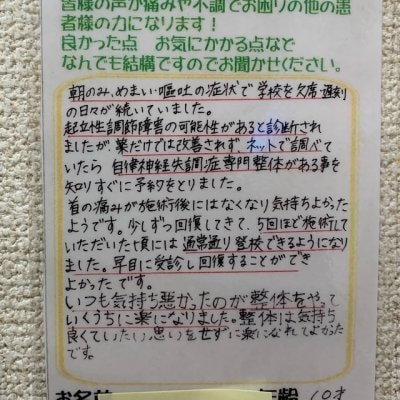 皆様の声が痛みや不調でお困りの他の患
者様の力になります！
良かった点　お気にかかる点など
なんでも結構ですのでお聞かせください。
朝のみ、めまい・嘔吐の症状で学校を欠席・遅刻
の日々が続いていました。
起立性調節障害の可能性があると診断され
ましたが、薬だけでは改善されず、ネットで調べて
いたら自律神経失調症専門整体がある事を
知りすぐに予約をとりました。
首の痛みが施術後にはなくなり気持ちよかった
ようです。少しずつ回復してきて、5回ほど施術して
いただいた頃には通常通り登校できるようになり
ました。早目に受診し回復することができ
よかったです。
いつも気持ち悪かったのが整体をやって
いくうちに楽になりました。整体は気持ち
良くていたい思いをせずに楽になれてよかった
です。
お名前
年齢 10才